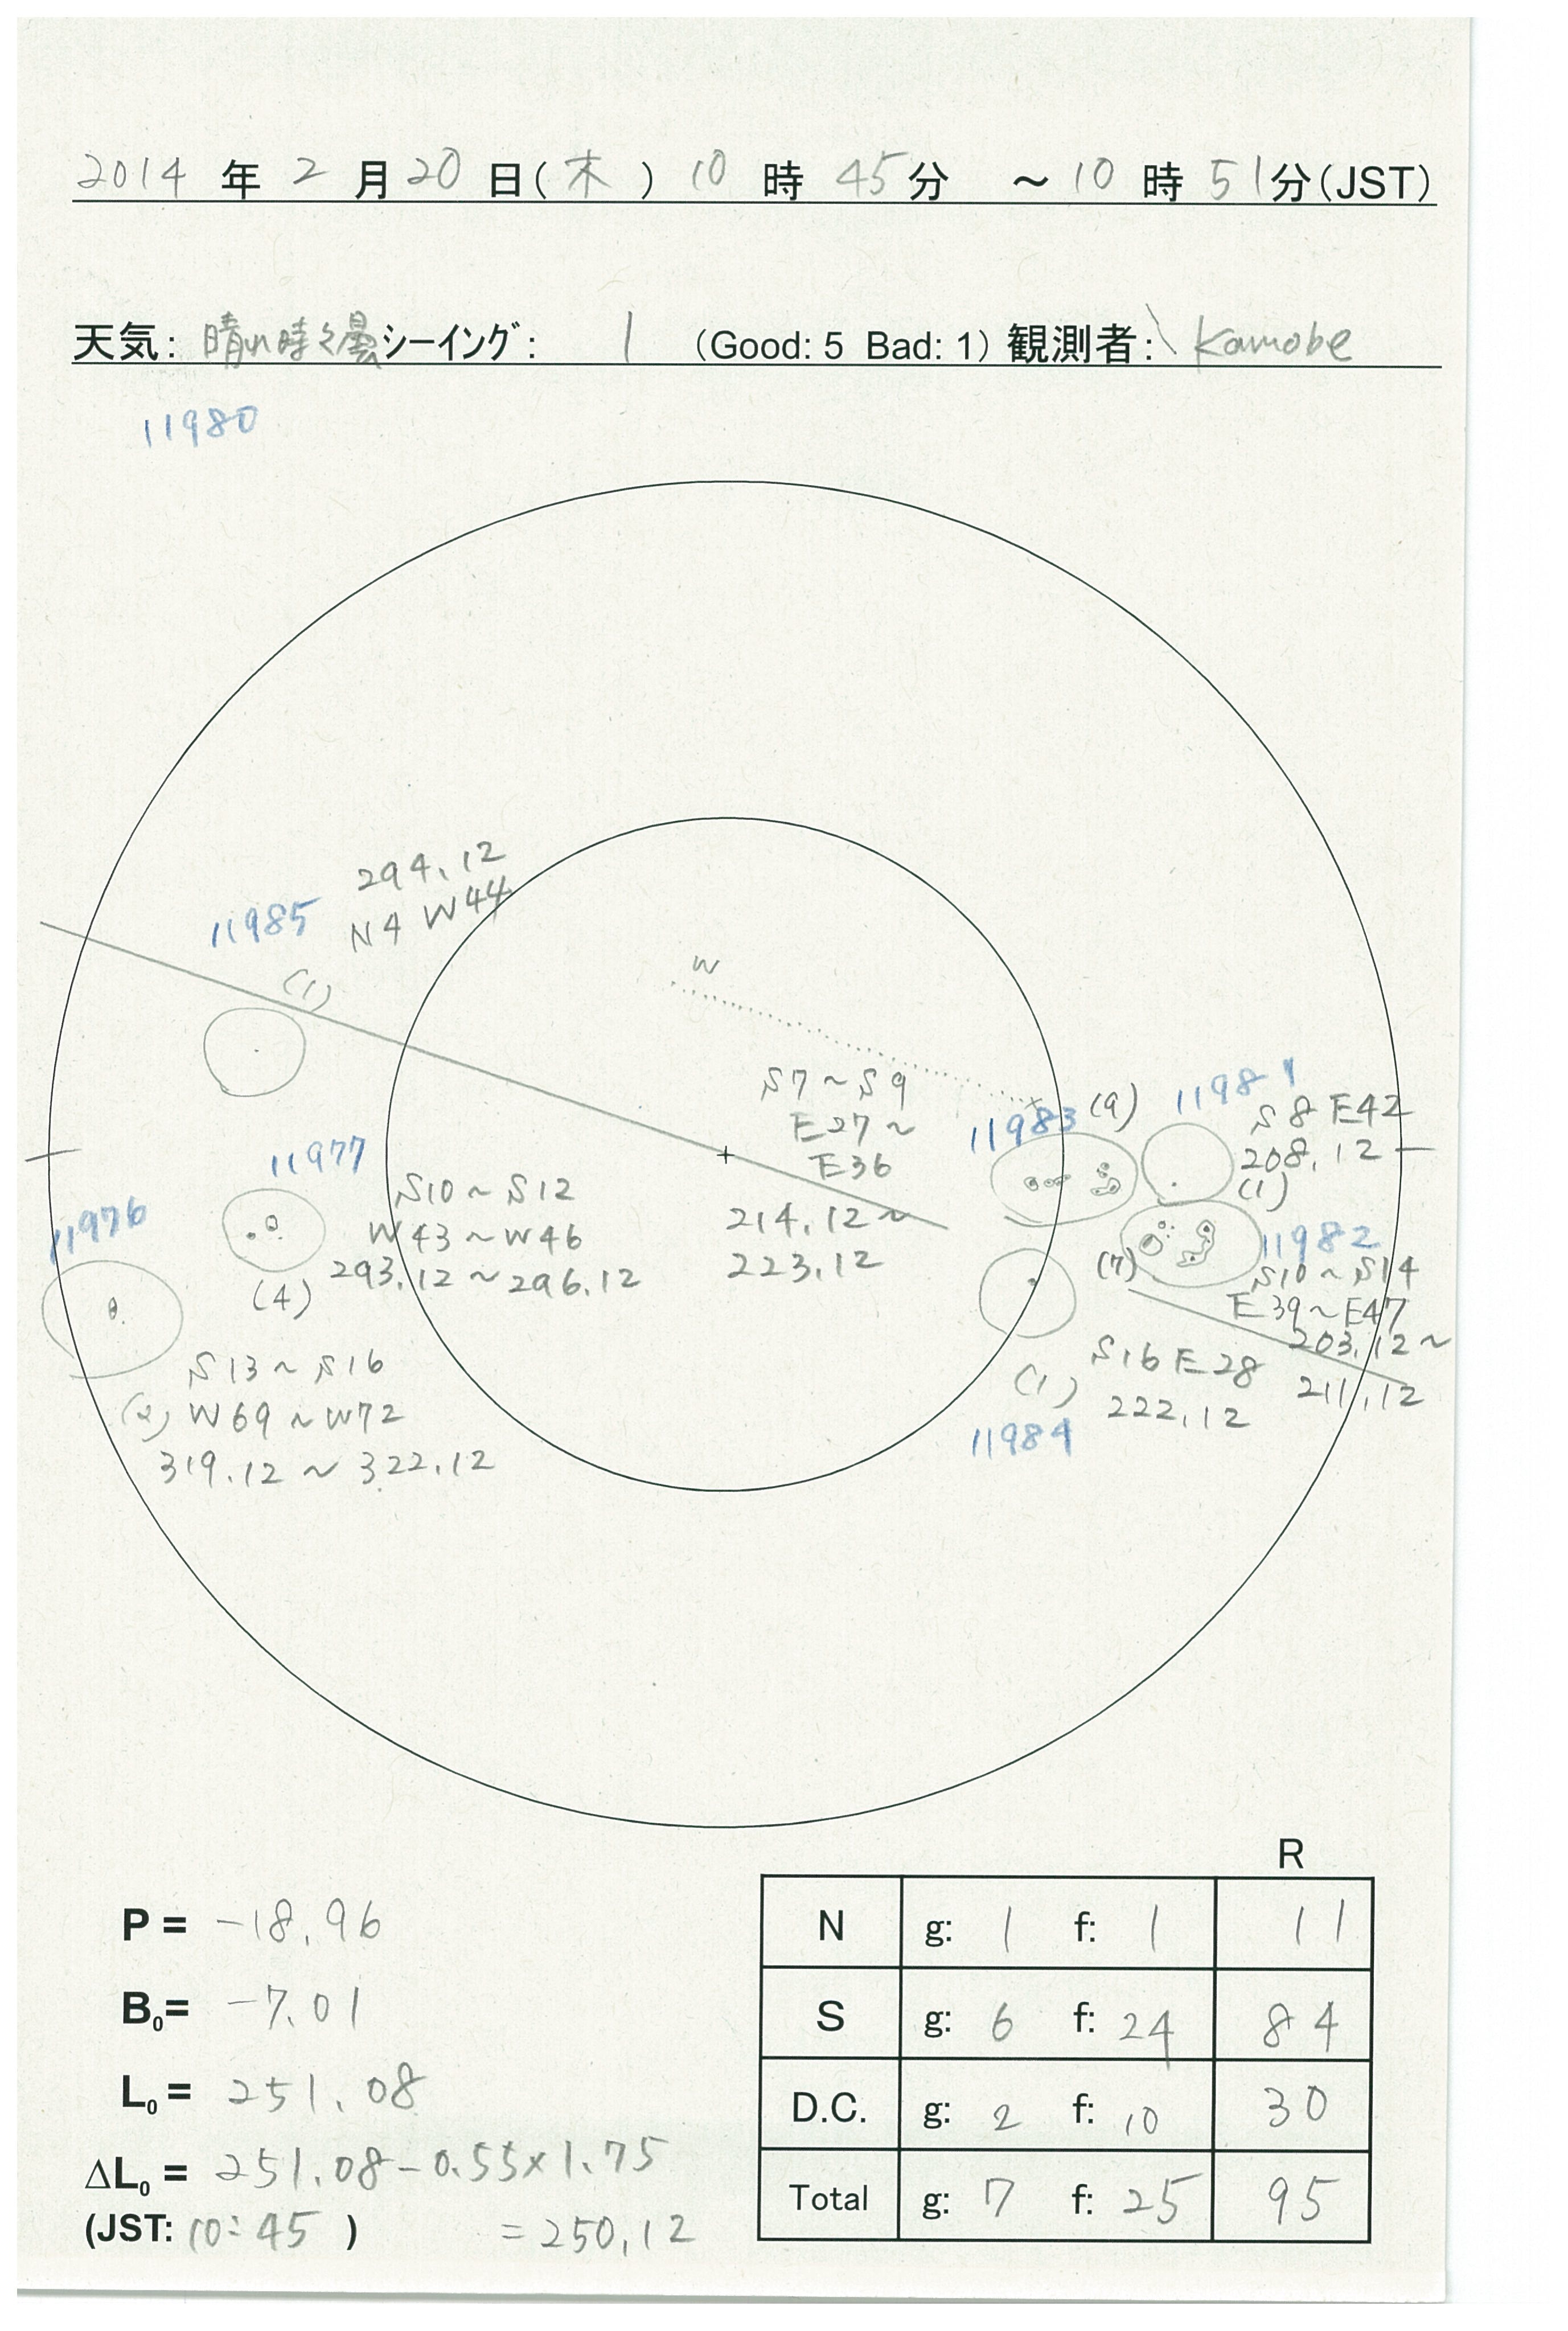 2014 年 2 月 20 日(木) 10 時 45 分 ～ 10 時 51 分(JST)
天気: 晴れ時々曇 シーイング: 1 (Good: 5 Bad: 1) 観測者: Kamobe
11980
294.12
N4 W44
11985
(1)
W
S7~S9
E27~
E36
214.12~
223.12
11983 (9)
11981
S8 E42
208.12
(1)
11977
S10~S12
W43~W46
293.12~296.12
(4)
11976
S13~S16
(2) W69~W72
319.12~322.12
11982
(7)
S10~S14
E39~E47
203.12~
211.12
S16 E28
(1) 222.12
11984
R
P = -18.96
B0= -7.01
L0= 251.08
ΔL0= 251.08-0.55×1.75
(JST: 10:45 ) =250.12
N g: 1 f: 1 11
S g: 6 f: 24 84
D.C. g: 2 f: 10 30
Total g: 7 f: 25 95